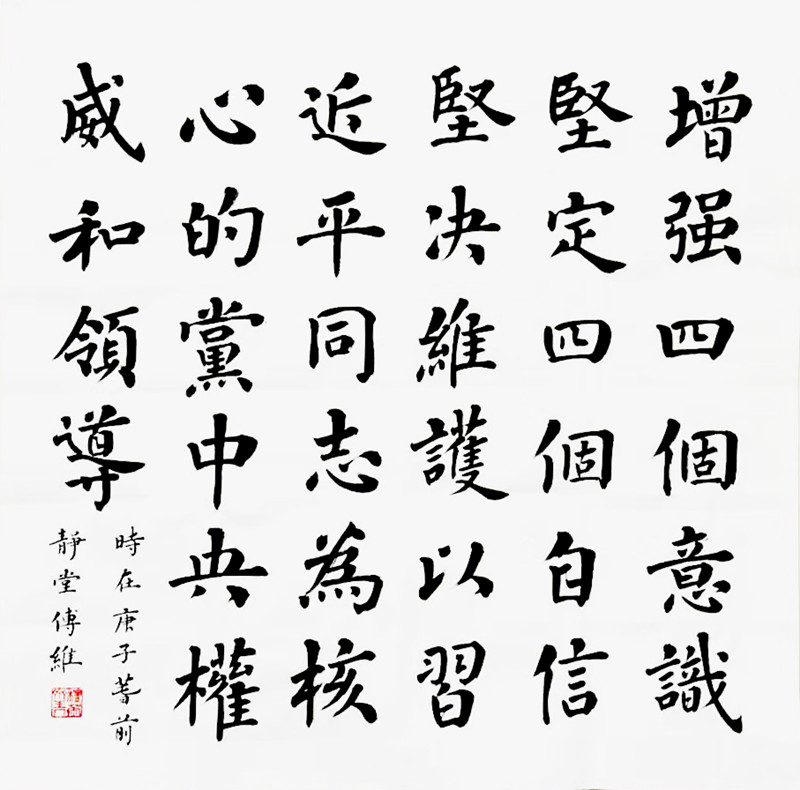 增强四個意識
堅定四個自信
堅决維護以習
近平同志為核
心的黨中央權
威和領導
時在庚子前
靜堂傅維